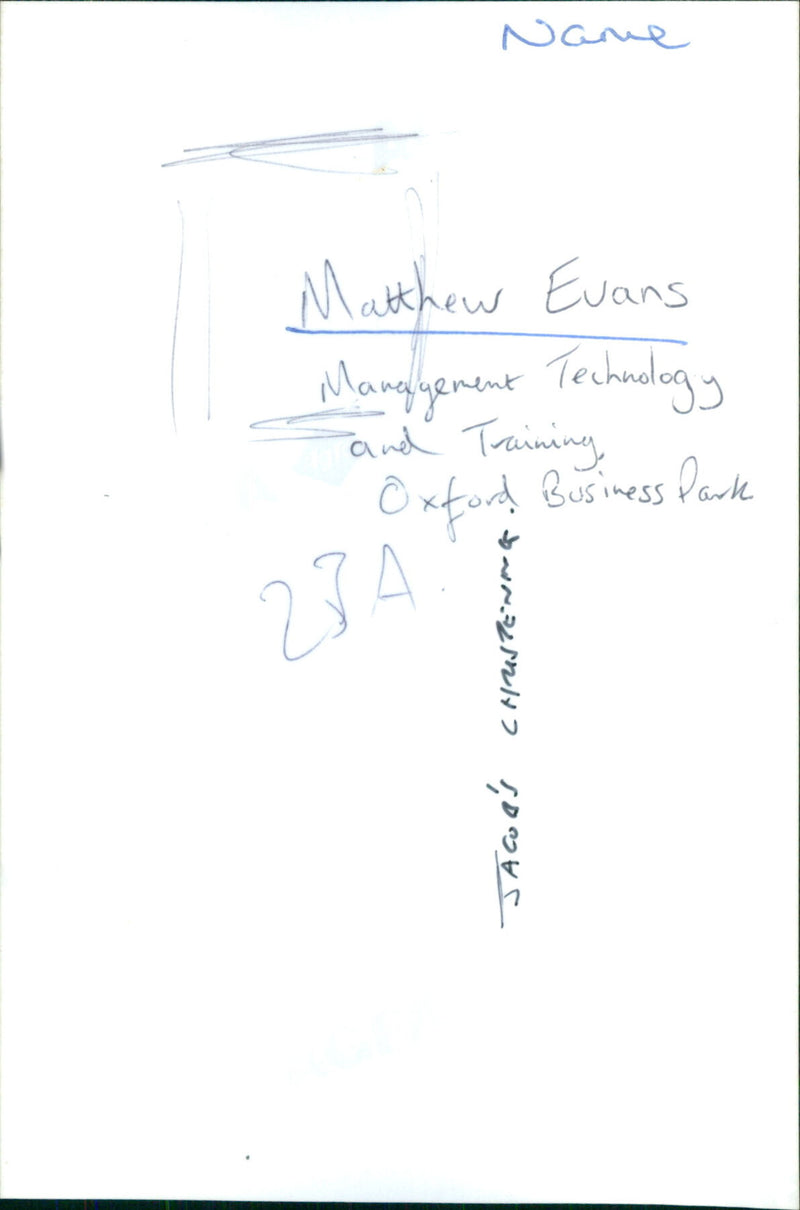 Name
Matthew Evans
Management Technology
and Training,
Oxford Business Park
23A
JACOB'S CHRISTENING.